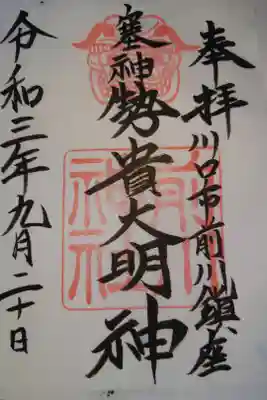 奉拝
川口市前川鎮座
塞神
勢貴大明神
令和三年九月二十日